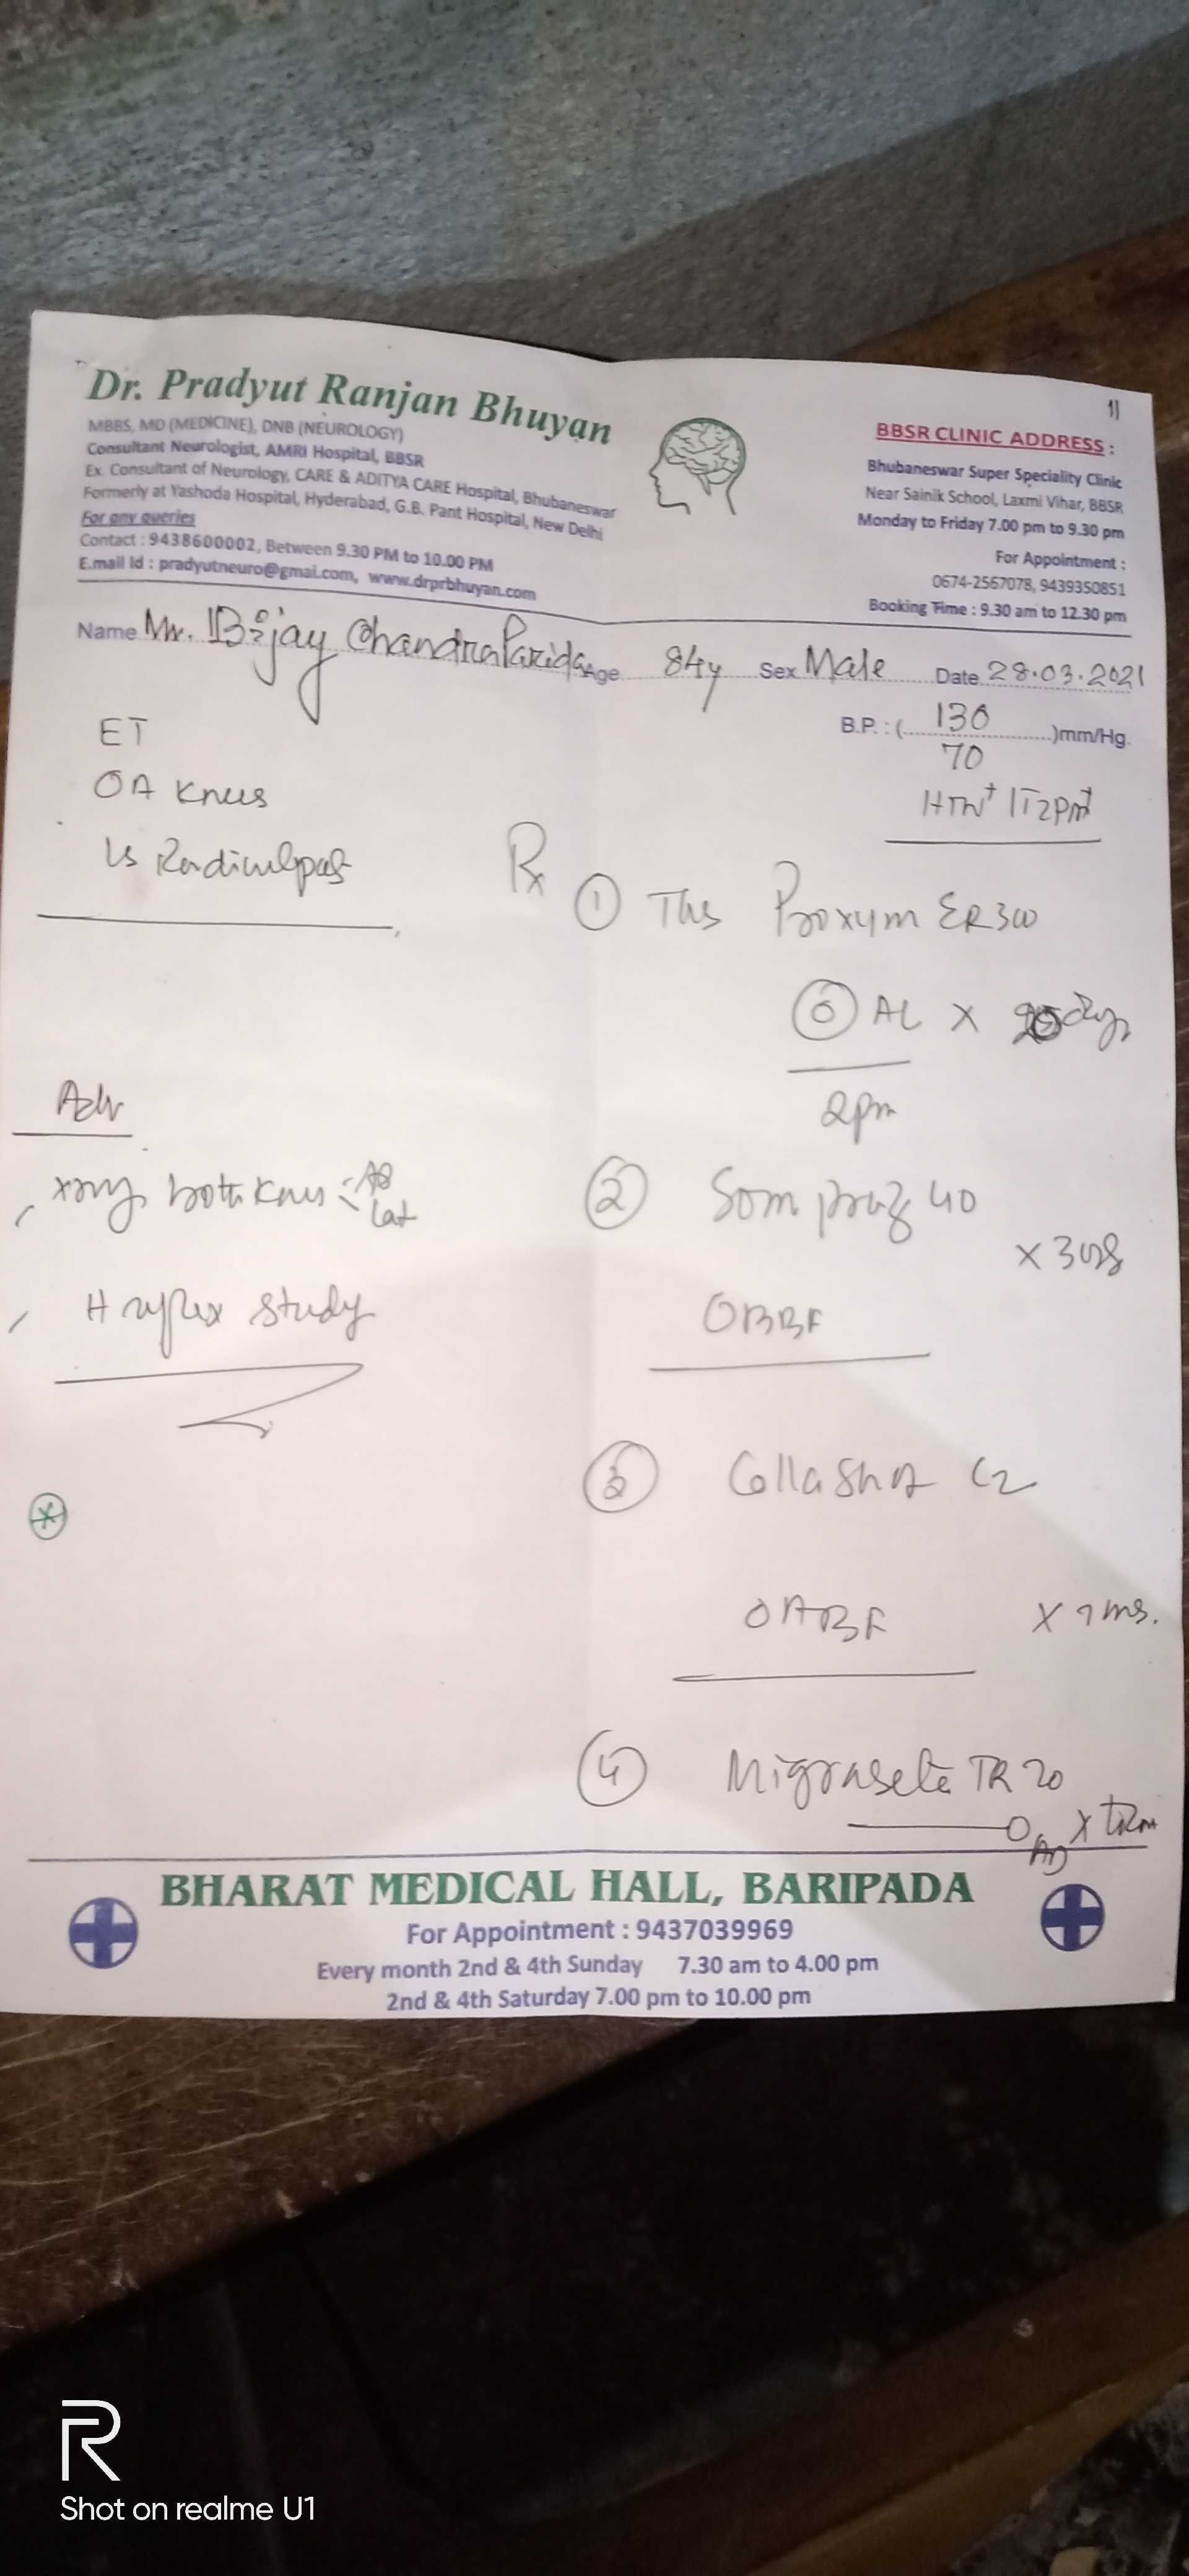 11
Dr. Pradyut Ranjan Bhuyan
MBBS, MD (MEDICINE), DNB (NEUROLOGY)
Consultant Neurologist, AMRI Hospital, BBSR
Ex. Consultant of Neurology, CARE & ADITYA CARE Hospital, Bhubaneswar
Formerly at Yashoda Hospital, Hyderabad, G.B. Pant Hospital, New Delhi
For any queries
Contact : 9438600002, Between 9.30 PM to 10.00 PM
E.mail Id : pradyutneuro@gmai.com, www.drprbhuyan.com
BBSR CLINIC ADDRESS :
Bhubaneswar Super Speciality Clinic
Near Sainik School, Laxmi Vihar, BBSR
Monday to Friday 7.00 pm to 9.30 pm
For Appointment :
0674-2567078, 9439350851
Booking Time : 9.30 am to 12.30 pm
Name Mr. Bijay Chandra Parida Age 84y Sex Male Date 28.03.2021
B.P. : ( 130 )mm/Hg.
70
HTN+
ET
OA Knees
Ls
Rx
1 Proxym ER 300
AL X
2pm
Adv
xray both Knees AP
Lat
H reflex study
2 Sompraz 40
OBBF
3 C2
OABF
4 TR 20
X
BHARAT MEDICAL HALL, BARIPADA
For Appointment : 9437039969
Every month 2nd & 4th Sunday 7.30 am to 4.00 pm
2nd & 4th Saturday 7.00 pm to 10.00 pm
R
Shot on realme U1